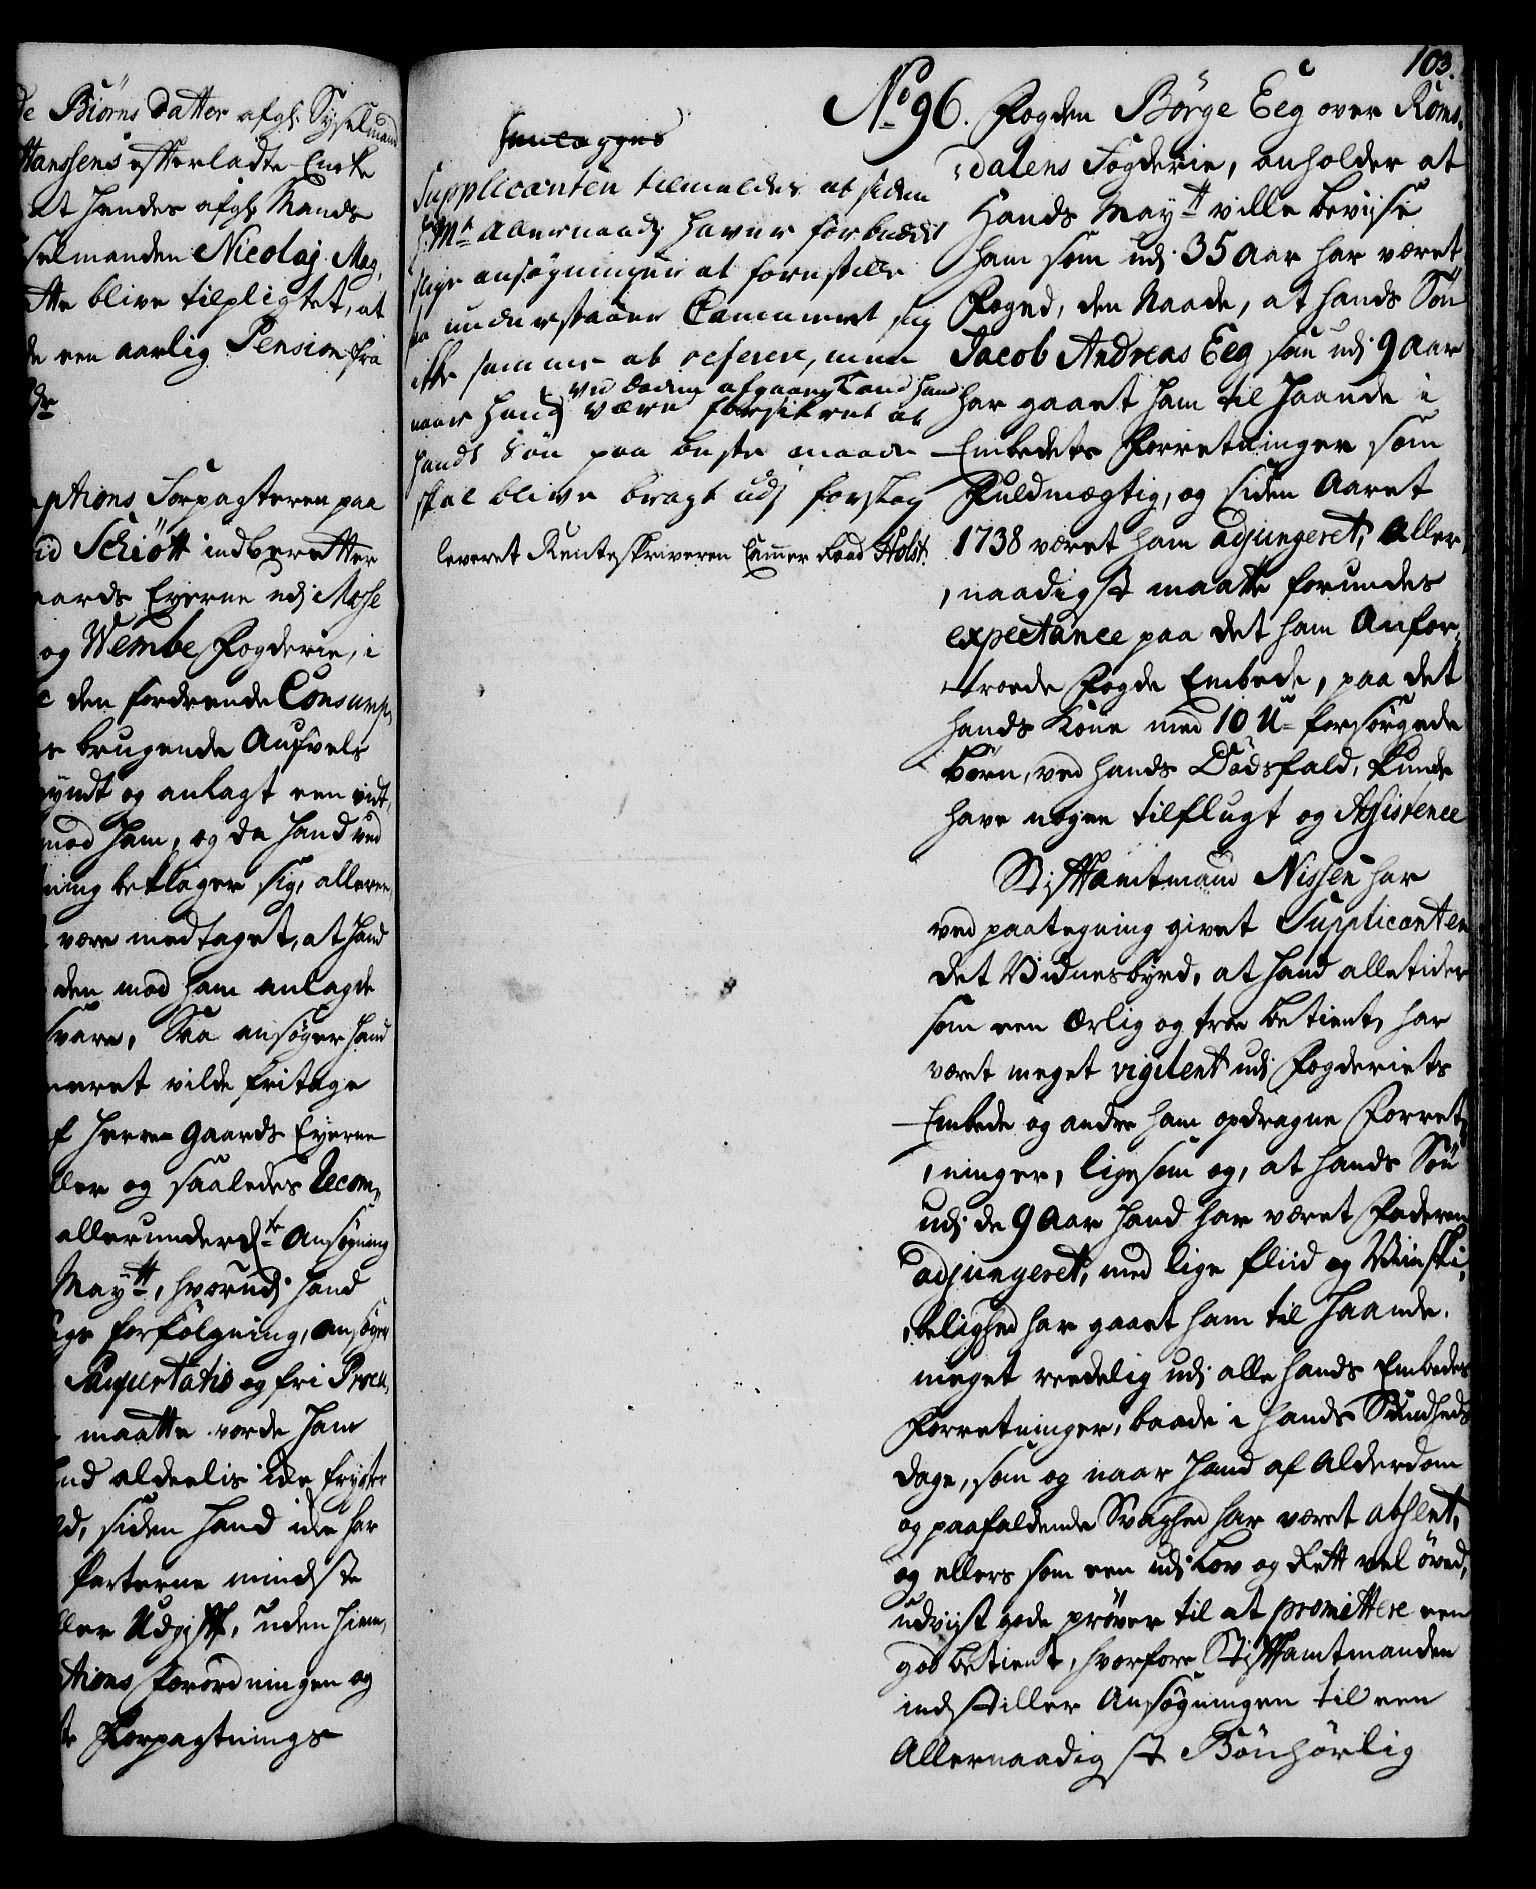 de Biörns Datter afg: Sysselmand
Hanssens efterladte Encke
at hendes afg: Mands
selmanden Nicolaj Mag,
tte blive tilpligtet, at
de een aarlig Pension fra
ptions Forpagteren paa
id Schiött indberetter
aards Eyerne udj Mosse
og Wembe Fogderie, i
den fordrende Consump,
brugende Aufvels
yndt og anlagt een vidt,
mod ham, og da hand ved
ning beklager sig, alleree,
være medtaget, at hand
den mod ham anlagde
svare, Saa ansøger hand
meret vilde fritage
f Herre Gaards Eyerne
ller og saaledes Recom,,
allerunderd:te Ansøgning
May:tt, hvorudj hand
ge forfølgning, ansøger
Paupertatis og fri Procu,
maatte vorde ham
nd aldeelis icke frygter
d, siden hand icke har
Parterne mindste
ller Udgift, uden hiem,
tions Forordningen og
te Forpagtnings
103.
Supplicanten tilmeldes at siden
H: M:t Allernaad: haver forbudet
slige ansøgninger at forestille
saa understaaer Cammeret sig
icke samme at referere, men
ved døden afgaar kand hand
naar hand være forsikret at
hands Søn paa beste maade
skal blive bragt udj forslag
leveret Renteskriveren Cammer Raad Holst.
No 96. Fogden Börge Eeg over Roms,
,dalens Fogderie, anholder at
Hands May:tt ville bevijse
ham som udj 35 Aar har været
Foged, den Naade, at hands Søn
Jacob Andreas Eeg som udj 9 Aar
har gaaet ham til Haande i
Embedets Forretninger som
Fuldmægtig, og siden Aaret
1738 været ham adjungeret, Aller
,naadigst maatte forundes
expectance paa det ham Anfor,
,troede Fogde Embede, paa det
hands Kone med 10 U-forsørgede
Børn, ved hands Dødsfald, kunde
have nogen tilflugt og Assistence
Stiftamtmand Nissen har
ved paategning givet Supplicanten
det Vidnesbyrd, at hand alletider
som een Ærlig og troe betient, har
været meget vigilent udj Fogderiets
Embede og andre ham opdragne Forret,
,ninger, ligesom og, at hands Søn
udj de 9 Aar hand har været Faderen
adjungeret, med lige fliid og Viinski,
,belighed har gaaet ham til Haande.
meget reedelig udj alle hands Embedes
Forretninger, baade i hands Sundheds
dage, som og naar hand af Alderdom
og paafaldende Svaghed har været absent,
og ellers som een udj Lov og Rett vel øved,
udvijst gode prøver til at promittere een
god betient, hvorfore Stiftamtmanden
indstiller Ansøgningen til een
Allernaadigst Bönhörlig